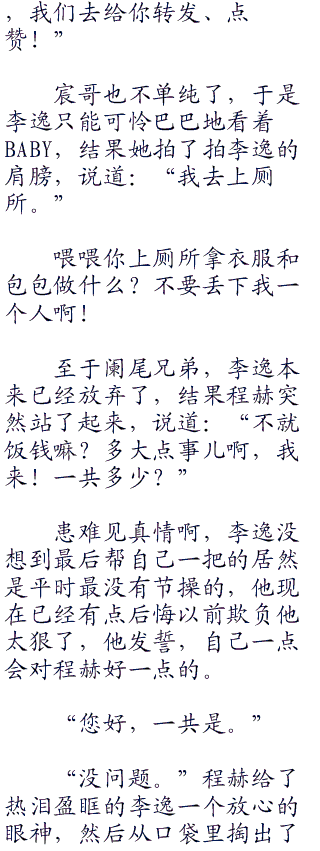 ，我们去给你转发、点
赞！”
宸哥也不单纯了，于是
李逸只能可怜巴巴地看着
BABY，结果她拍了拍李逸的
肩膀，说道：“我去上厕
所。”
喂喂你上厕所拿衣服和
包包做什么？不要丢下我一
个人啊！
至于阑尾兄弟，李逸本
来已经放弃了，结果程赫突
然站了起来，说道：“不就
饭钱嘛？多大点事儿啊，我
来！一共多少？”
患难见真情啊，李逸没
想到最后帮自己一把的居然
是平时最没有节操的，他现
在已经有点后悔以前欺负他
太狠了，他发誓，自己一点
会对程赫好一点的。
“您好，一共是。”
“没问题。”程赫给了
热泪盈眶的李逸一个放心的
眼神，然后从口袋里掏出了